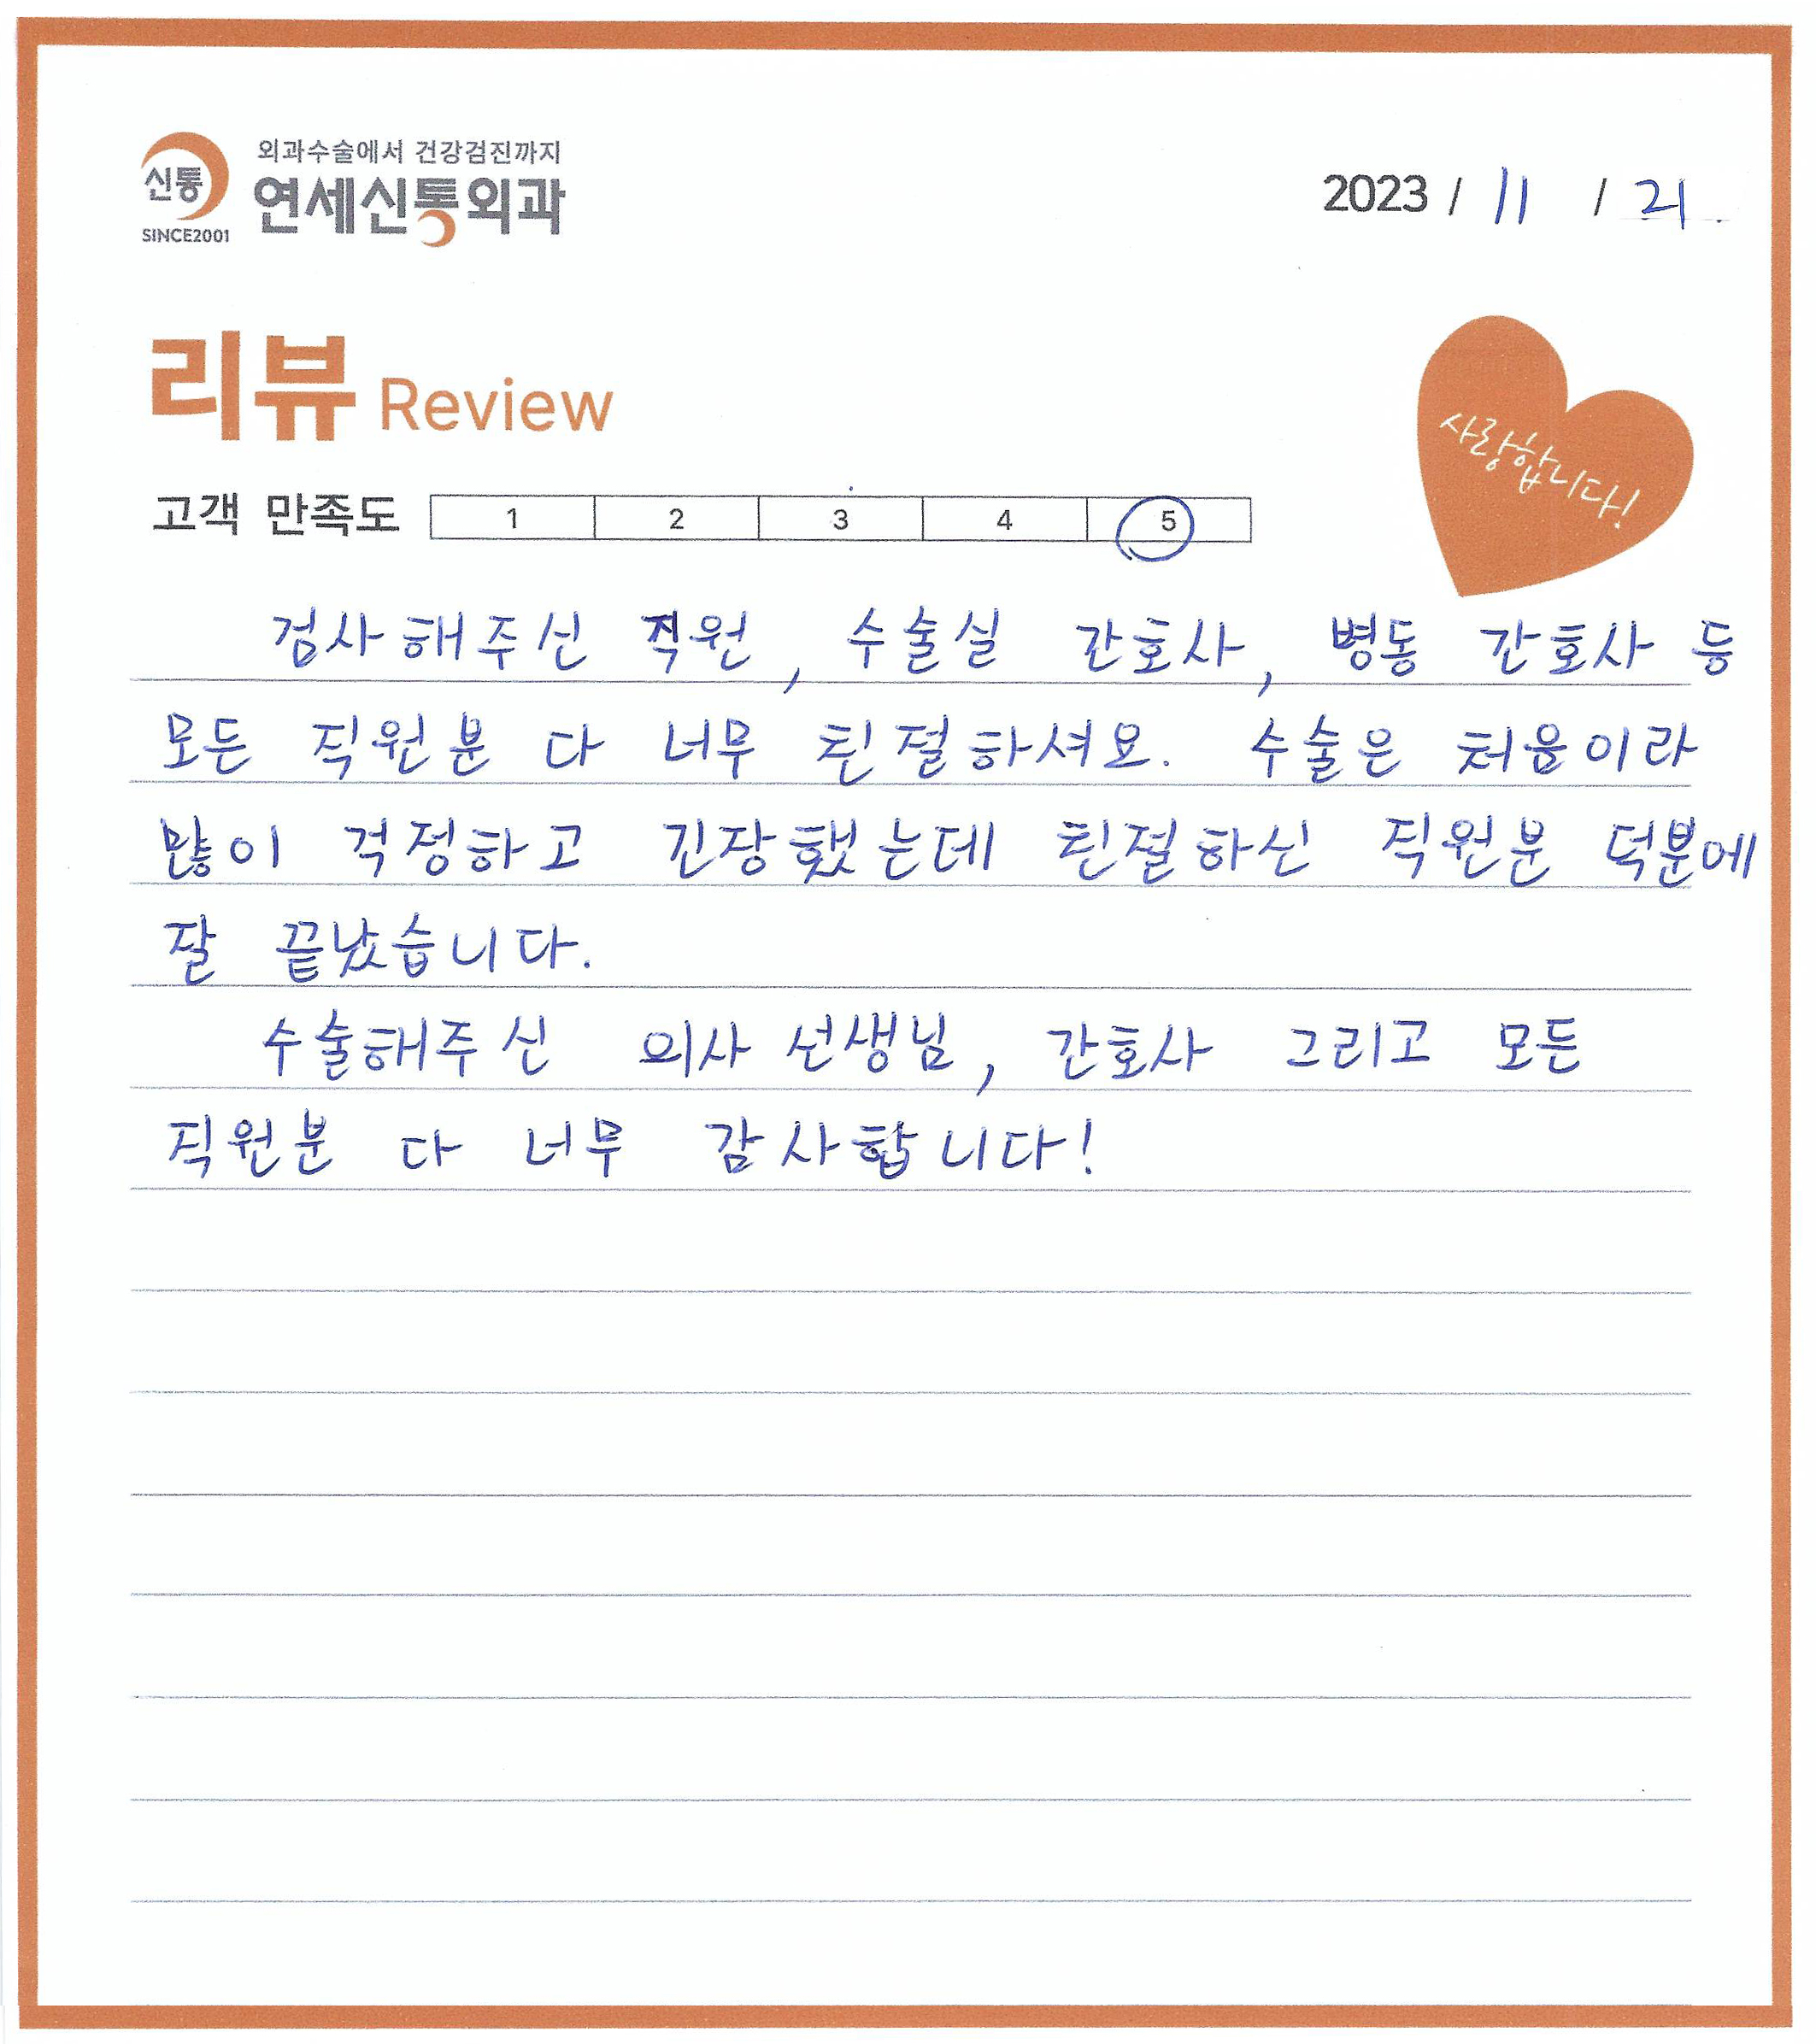 신통
SINCE2001
외과수술에서 건강검진까지
연세신통외과
2023 / 11 / 21.
리뷰 Review
사랑합니다!
고객 만족도 1 2 3 4 5
검사해주신 직원, 수술실 간호사, 병동 간호사 등
모든 직원분 다 너무 친절하셔요. 수술은 처음이라
많이 걱정하고 긴장했는데 친절하신 직원분 덕분에
잘 끝났습니다.
수술해주신 의사 선생님, 간호사 그리고 모든
직원분 다 너무 감사합니다!